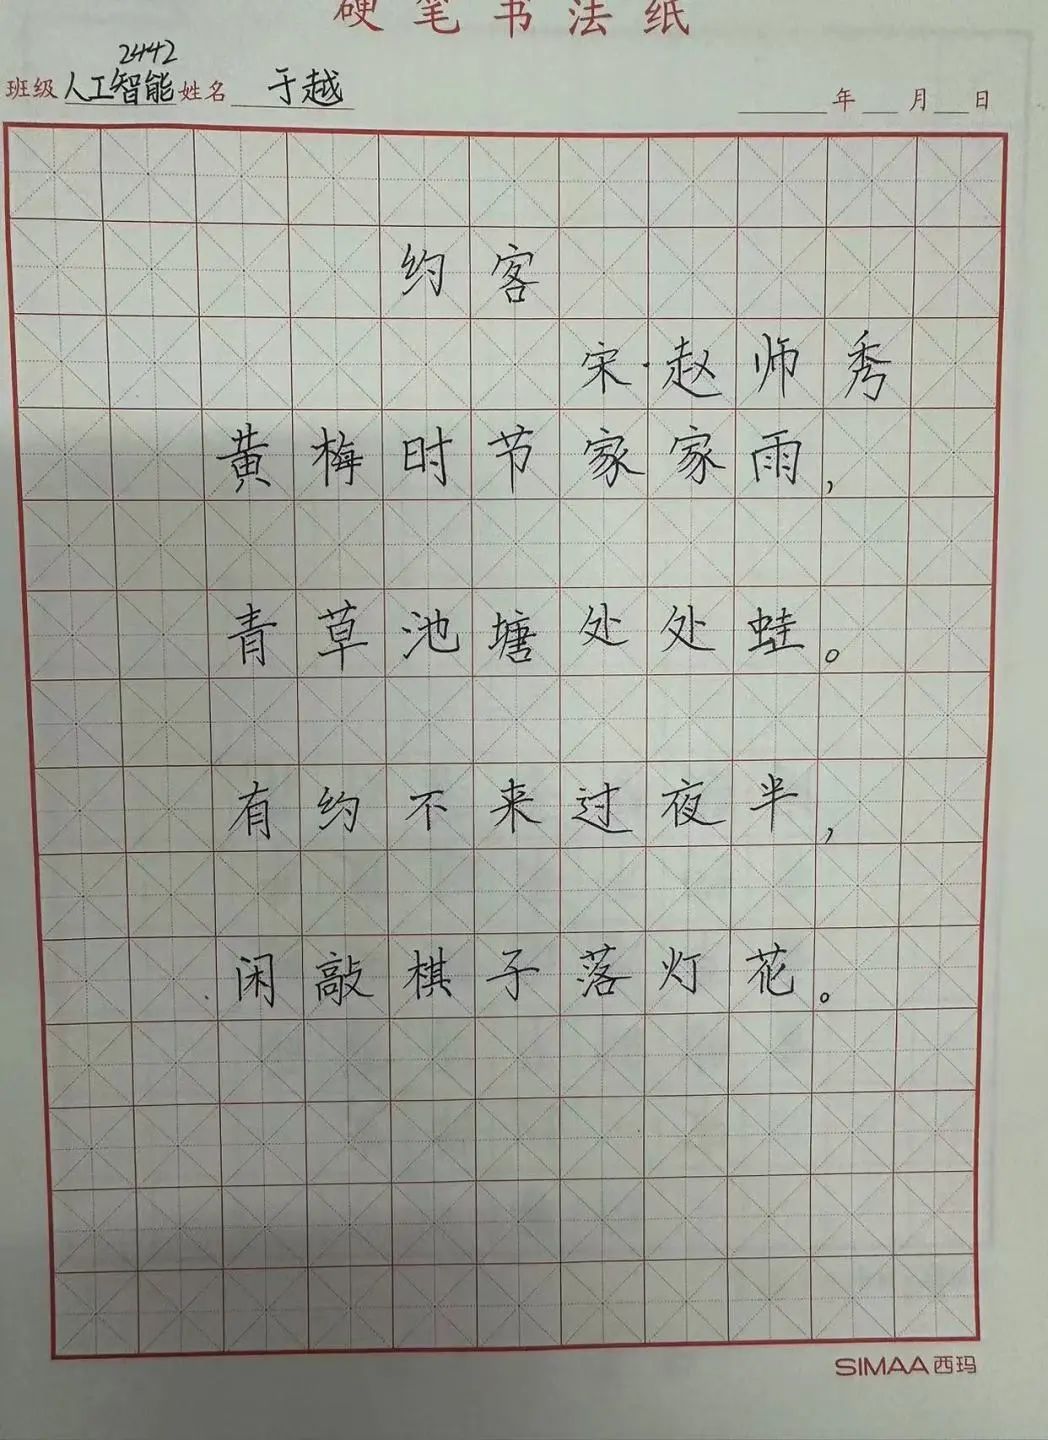 硬笔书法纸
2442
班级 人工智能 姓名 于越 年 月 日
约客
宋·赵师秀
黄梅时节家家雨，
青草池塘处处蛙。
有约不来过夜半，
闲敲棋子落灯花。
SIMAA西玛